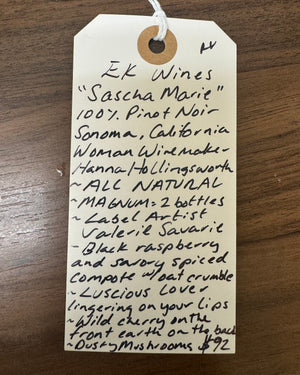 EK Wines
"Sascha Marie"
100% Pinot Noir
Sonoma, California
Woman Winemaker
Hanna Hollingsworth
~ ALL NATURAL
~ MAGNUM = 2 bottles
~ Label Artist
Valerie Savarie
~ Black raspberry
and savory spiced
compote w/oat crumble
~ Luscious Lover
lingering on your lips
~ Wild cherry on the
front earth on the back
~ Dusty Mushrooms $92